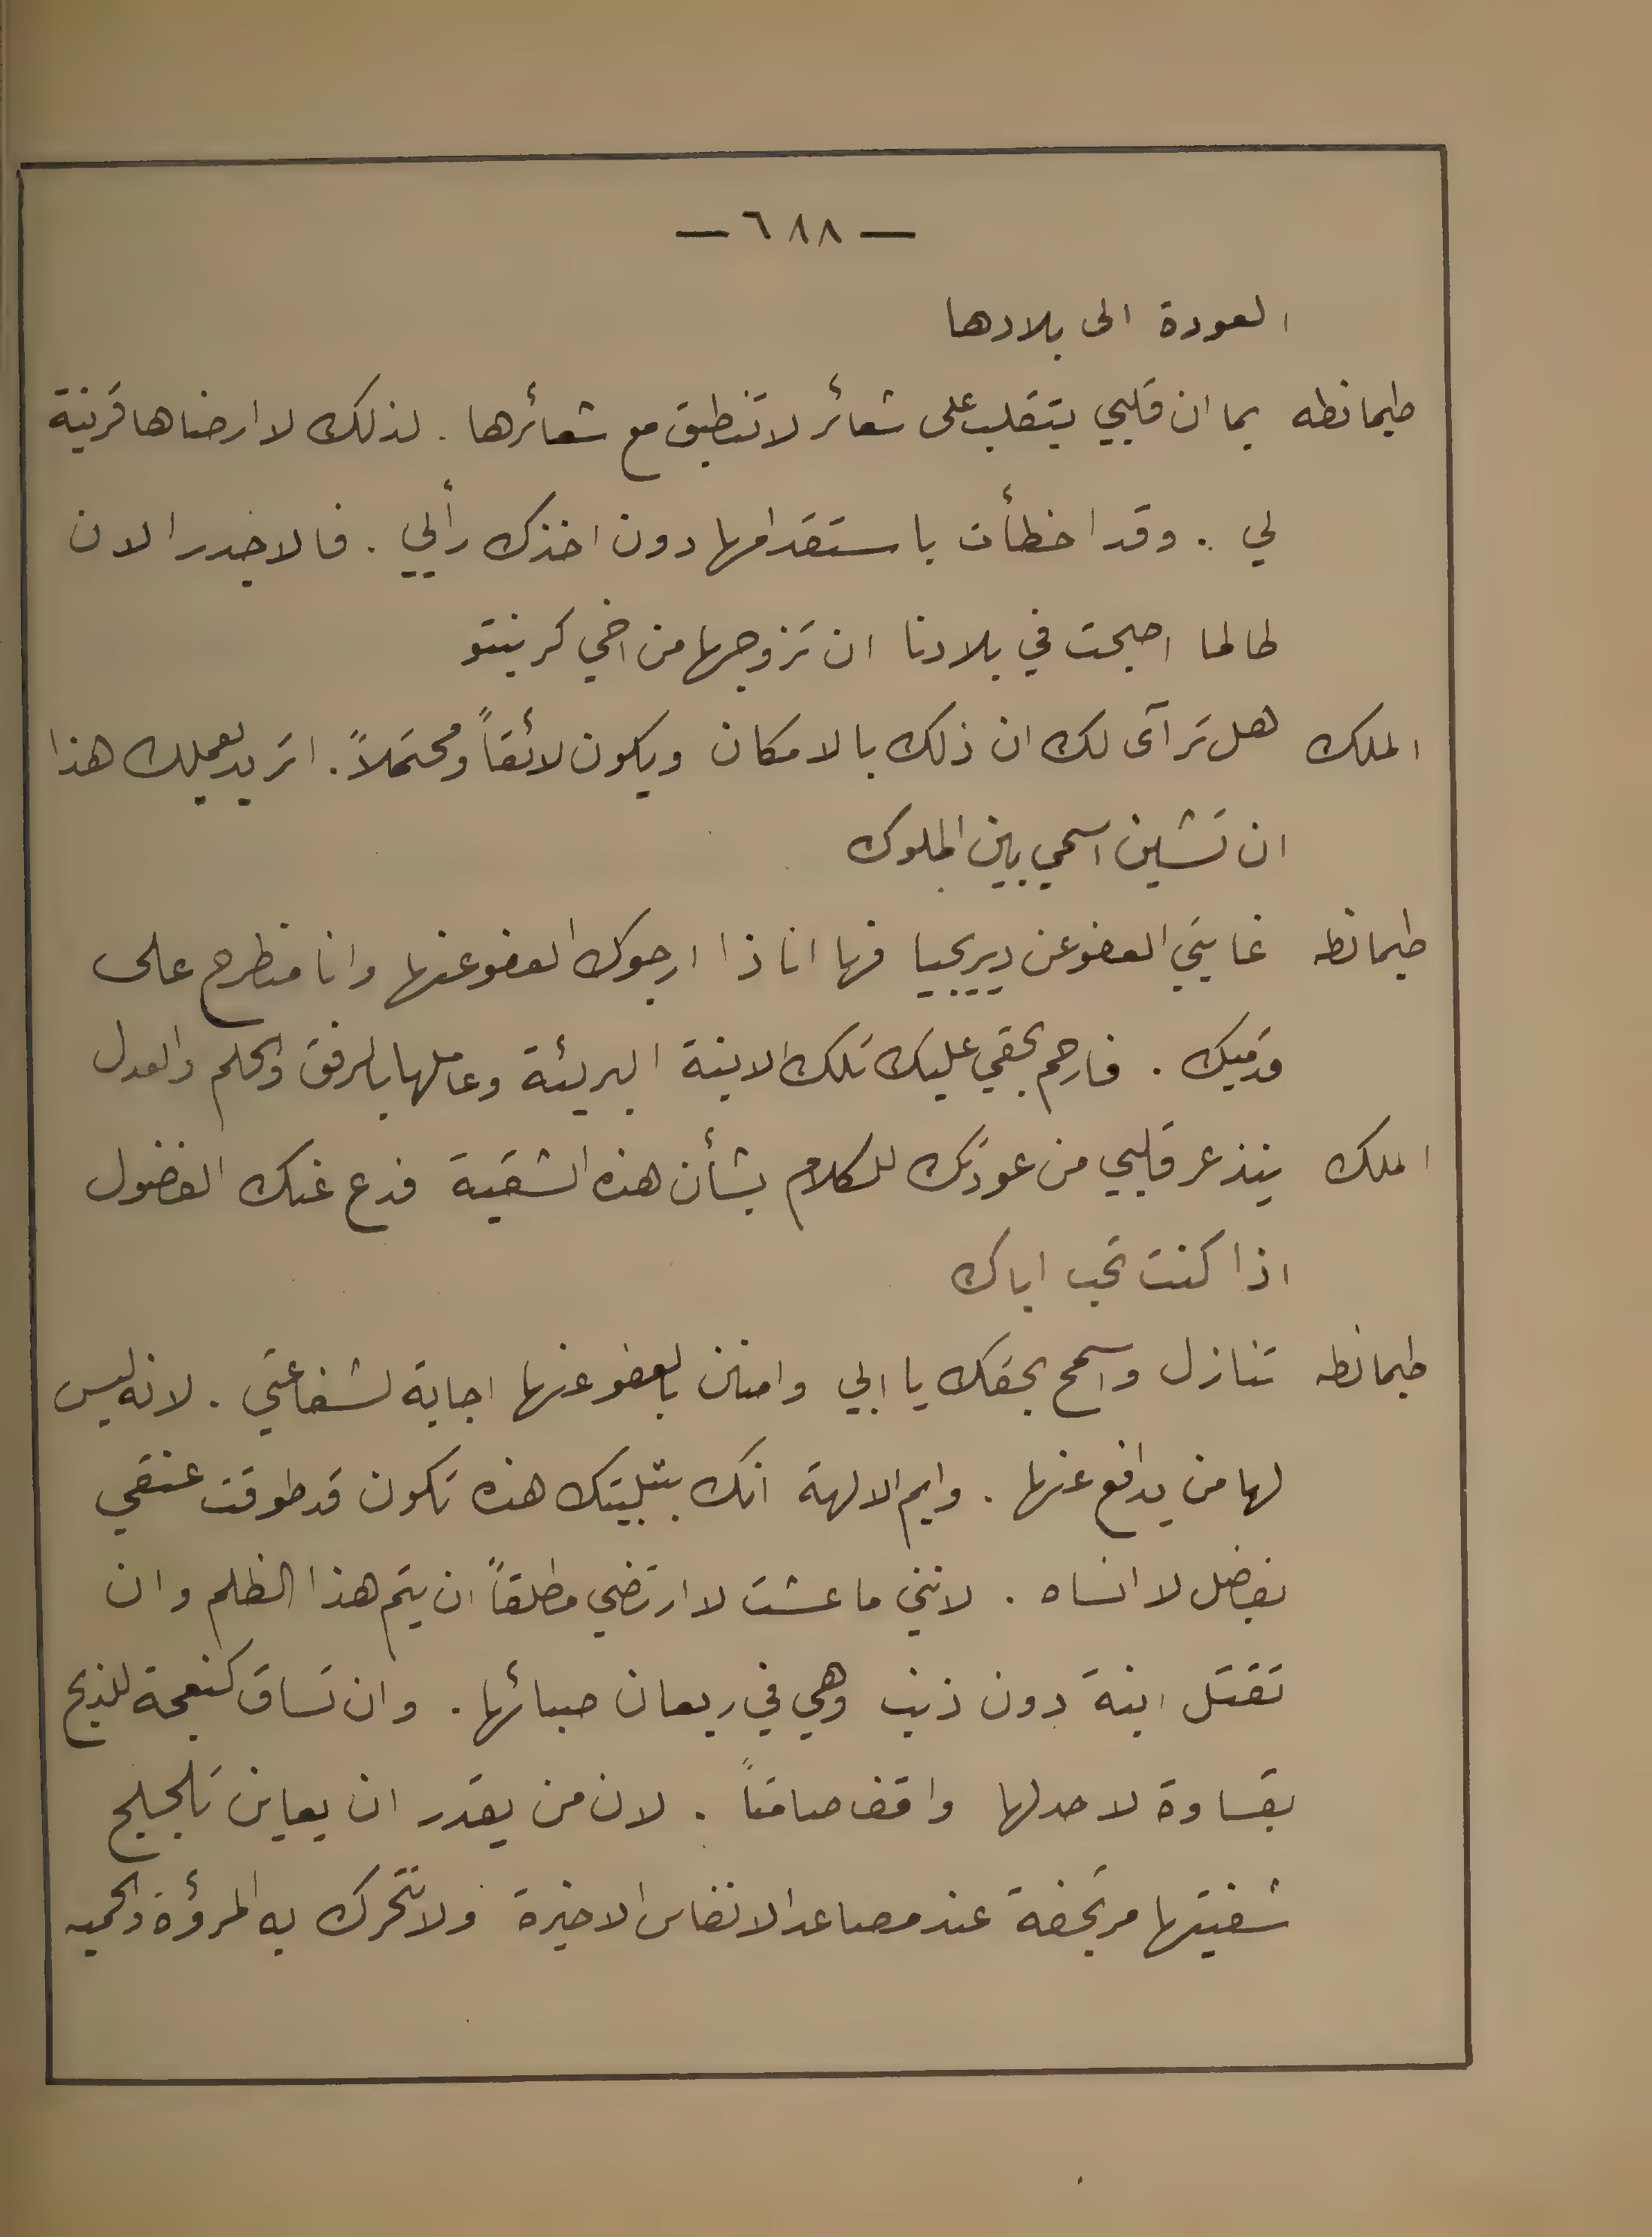 — ٦٨٨ —
العودة الى بلادها
طيمانطه بما ان قلبي يتقلب على شعائر لا تنطبق مع شعائرها . لذلك لا ارضاها قرينة
لي . وقد اخطأت باستقدامها دون اخذك رأيي . فالاجدر الان
طالما اصبحت في بلادنا ان تزوجها من اخي كرينتو
الملك هل ترآى لك ان ذلك بالامكان ويكون لائقاً ومحتملاً . اتريد بعملك هذا
ان تشين اسمي بين الملوك
طيمانطه غايتي العفو عن ديريجيا فها انا ذا ارجوك العفو عنها وانا منطرح على
قدميك . فارحم بحقي عليك تلك الابنة البريئة وعاملها بالرفق والحلم والعدل
الملك ينذعر قلبي من عودتك للكلام بشأن هذه الشقية فدع عنك الفضول
اذا كنت تحب اباك
طيمانطه تنازل واسمح بحقك يا ابي وامنن بالعفو عنها اجابة لشفاعتي . لانه ليس
لها من يدافع عنها . وايم الالهة انك بتلبيتك هذه تكون قد طوقت عنقي
بفضل لا انساه . لانني ما عشت لا ارتضي مطلقاً ان يتم هذا الظلم وان
تقتل ابنة دون ذنب وهي في ريعان صبائها . وان تساق كنعجة للذبح
بقساوة لا حد لها واقف صامتاً . لان من يقدر ان يعاين تلجلج
شفيتها مرتجفة عند مصاعد الانفاس الاخيرة ولا تتحرك به المرؤة والحميه